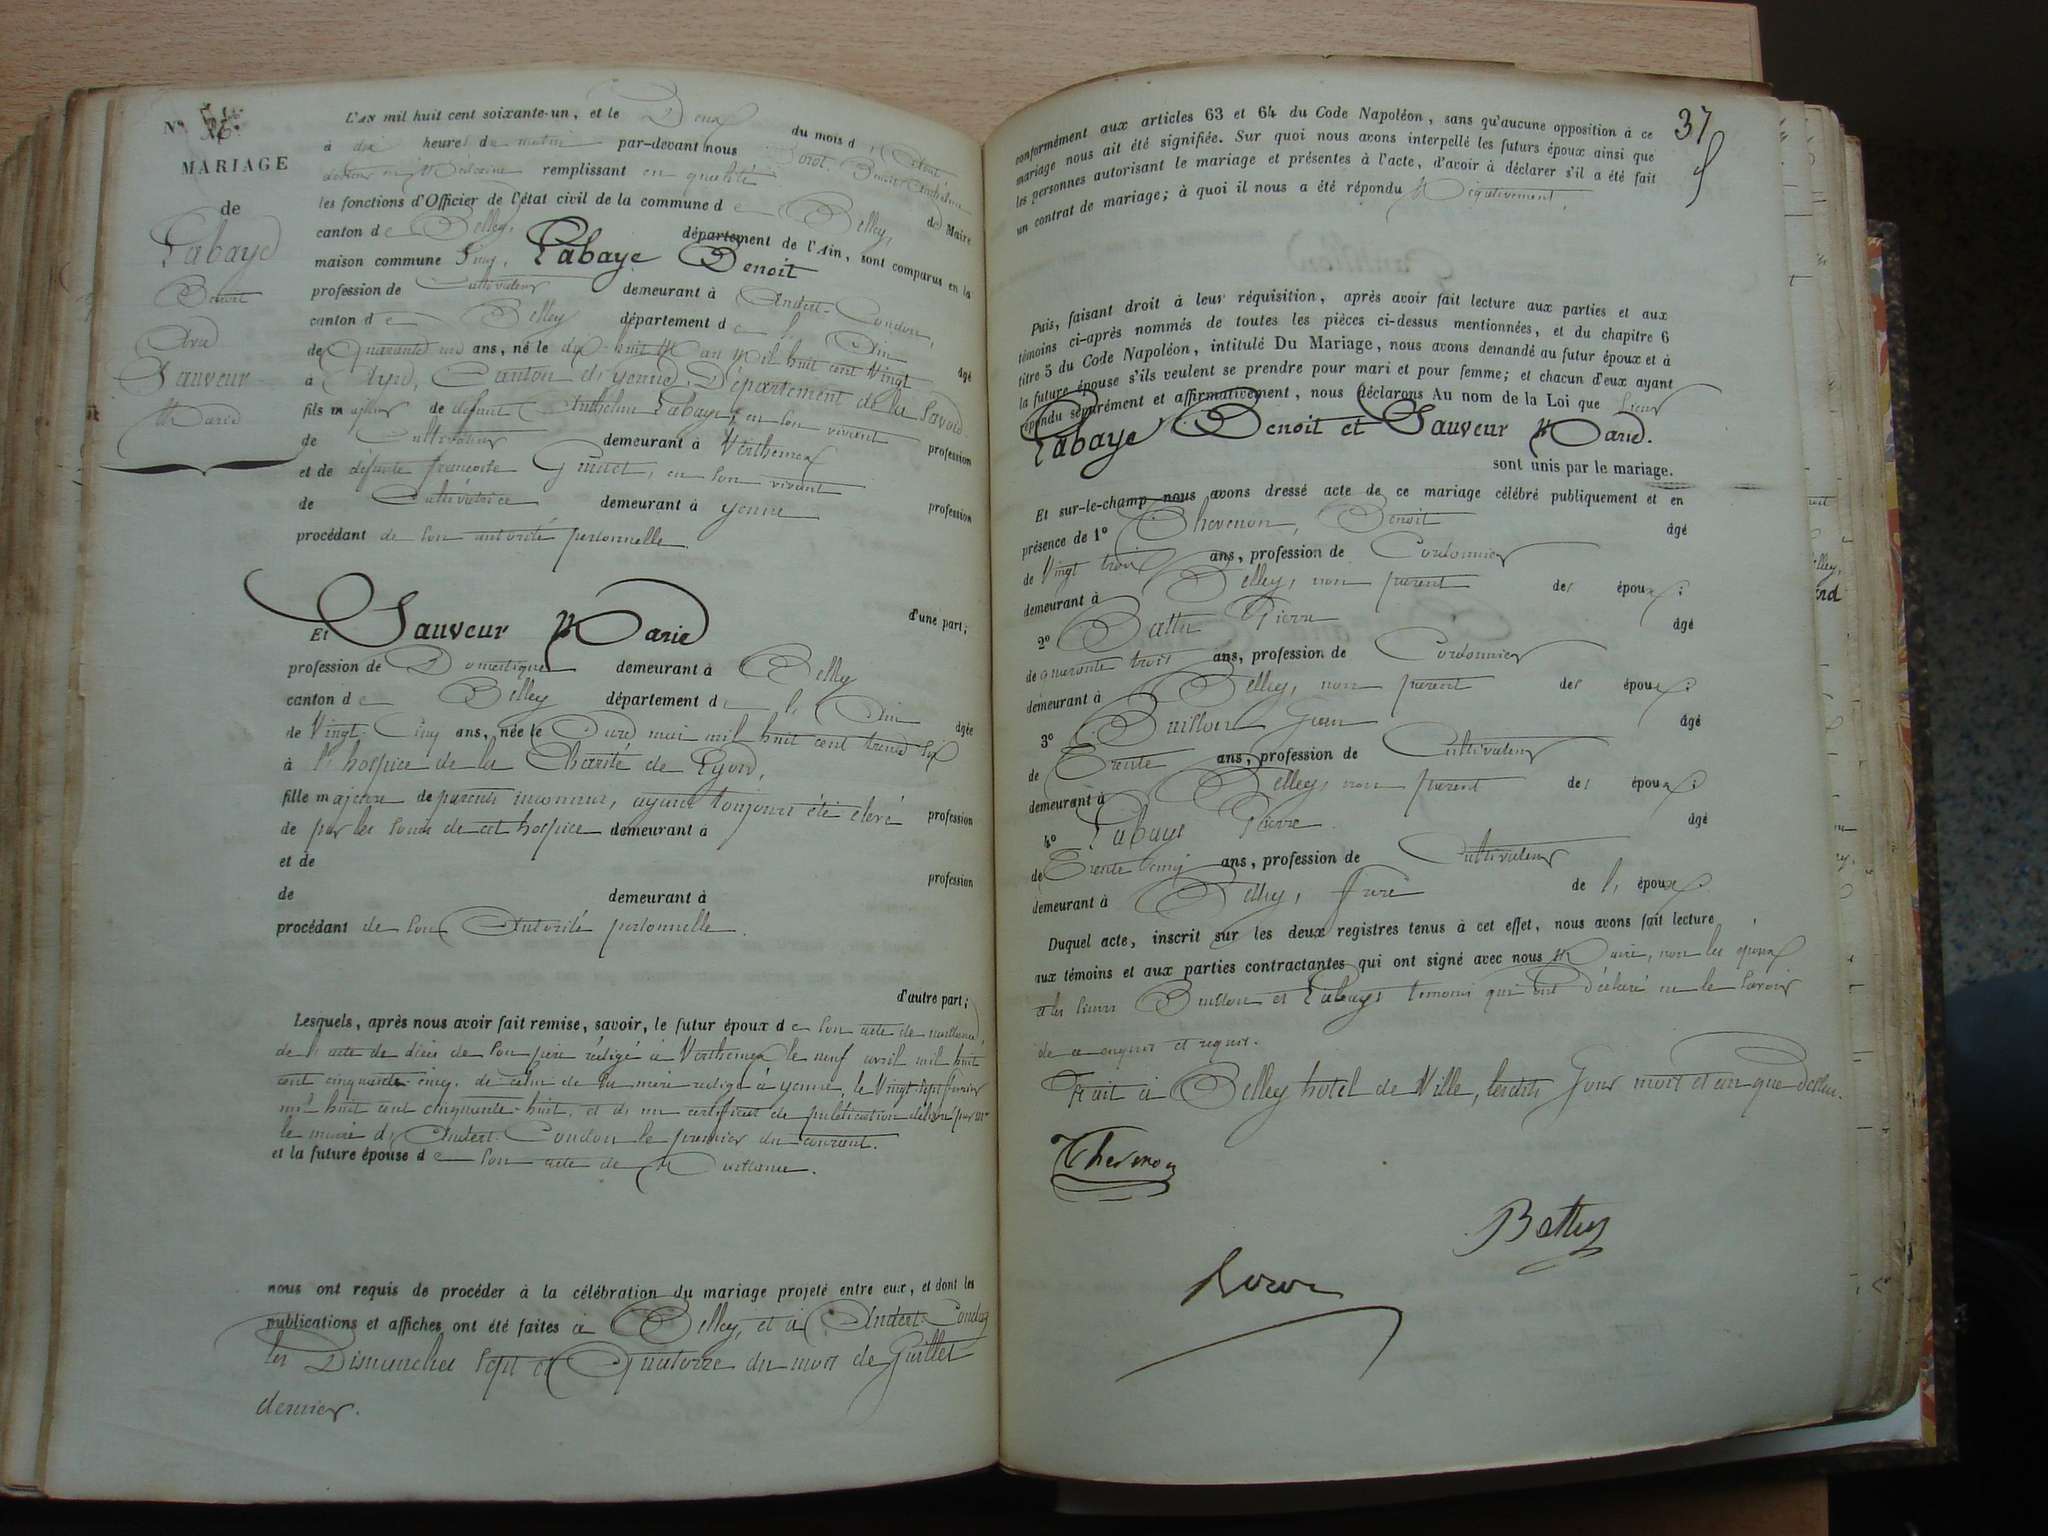 N° 36.
MARIAGE
de
Labaye
Benoit
Avec
Sauveur
Marie
L'AN mil huit cent soixante-un, et le Deux du mois d'Aout
à dix heures du matin par-devant nous
docteur en Médecine remplissant en qualité de Maire
les fonctions d'Officier de l'état civil de la commune de Belley,
canton de Belley, département de l'Ain, sont comparus en la
maison commune Labaye Benoit
profession de Cultivateur demeurant à Andert-Condon,
canton de Belley département de l'Ain âgé
de Quarante un ans, né le dix-huit Mars mil huit cent Vingt
à Canton de Yenne, Département de la Savoie
fils majeur de défunt Anthelme Labaye, en son vivant profession
de Cultivateur demeurant à Verthemex
et de défunte françoise en son vivant profession
de Cultivatrice demeurant à Yenne
procédant de son autorité personnelle.
d'une part;
Et Sauveur Marie
profession de Domestique demeurant à Belley
canton de Belley département de l'Ain âgée
de Vingt-Cinq ans, née le mai mil huit cent trente six
à l'hospice de la Charité de Lyon,
fille majeure de parents inconnus, ayant toujours été élevé profession
de par les soins de cet hospice demeurant à
et de profession
de demeurant à
procédant de son Autorité personnelle.
d'autre part;
Lesquels, après nous avoir fait remise, savoir, le futur époux de son acte de naissance,
de l'acte de décès de son père rédigé à Verthemex le neuf avril mil huit
cent cinquante-cinq, de celui de sa mère rédigé à Yenne, le Vingt sept février
mil huit cent cinquante-huit, et de un certificat de publication délivré par Mr
le maire d'Andert-Condon le premier du courant.
et la future épouse de son acte de Naissance.
nous ont requis de procéder à la célébration du mariage projeté entre eux, et dont les
publications et affiches ont été faites à Belley, et à Andert-Condon
les Dimanches sept et Quatorze du mois de Juillet
dernier.
37
conformément aux articles 63 et 64 du Code Napoléon, sans qu'aucune opposition à ce
mariage nous ait été signifiée. Sur quoi nous avons interpellé les futurs époux ainsi que
les personnes autorisant le mariage et présentes à l'acte, d'avoir à déclarer s'il a été fait
un contrat de mariage; à quoi il nous a été répondu Négativement.
Puis, faisant droit à leur réquisition, après avoir fait lecture aux parties et aux
témoins ci-après nommés de toutes les pièces ci-dessus mentionnées, et du chapitre 6
titre 5 du Code Napoléon, intitulé Du Mariage, nous avons demandé au futur époux et à
la future épouse s'ils veulent se prendre pour mari et pour femme; et chacun d'eux ayant
répondu séparément et affirmativement, nous déclarons Au nom de la Loi que
Labaye Benoit et Sauveur Marie.
sont unis par le mariage.
Et sur-le-champ nous avons dressé acte de ce mariage célébré publiquement et en
présence de 1° Chevenon, Benoit âgé
de Vingt trois ans, profession de Cordonnier
demeurant à Belley, non parent des époux;
2° Battu Pierre âgé
de quarante trois ans, profession de Cordonnier
demeurant à Belley, non parent des époux;
3° Buillon Jean âgé
de Trente ans, profession de Cultivateur
demeurant à Belley, non parent des époux;
4° Labaye Pierre âgé
de Trente cinq ans, profession de Cultivateur
demeurant à Belley, frère de l'époux.
Duquel acte, inscrit sur les deux registres tenus à cet effet, nous avons fait lecture
aux témoins et aux parties contractantes qui ont signé avec nous Maire, non les époux
et les sieurs Buillon et Labaye témoins qui ont déclaré ne le savoir
de ce enquis et requis.
Fait à Belley hôtel de Ville, lesdits Jour mois et an que dessus.
Chevenon
Battu